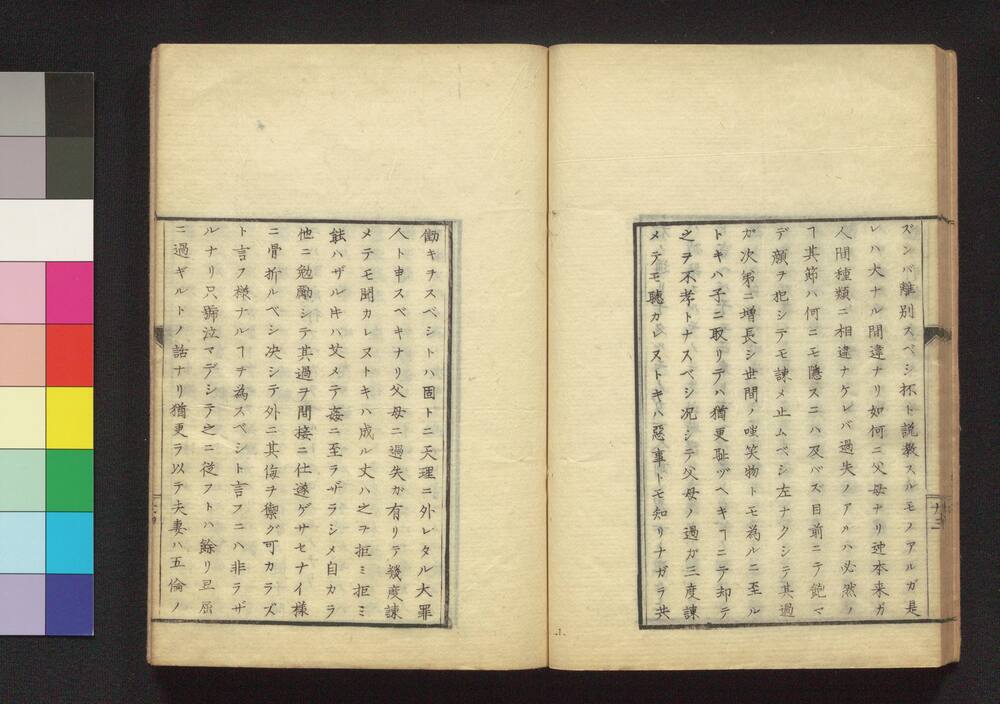 ズンバ離別スベシ抔ト説教スルモノアルガ是
レハ大ナル間違ナリ如何ニ父母ナリ迚本来ガ
人間種類ニ相違ナケレバ過失ノアルハ必然ノ
ヿ其節ハ何ニモ隠スニハ及バズ目前ニテ飽マ
デ顔ヲ犯シテモ諫メ止ムベシ左ナクシテ其過
ガ次第ニ増長シ世間ノ嗤笑物トモ為ルニ至ル
トキハ子ニ取リテハ猶更耻ヅベキヿニテ却テ
之ヲ不孝トナスベシ况シテ父母ノ過ガ三度諫
メテモ聴カレヌトキハ惡事トモ知リナガラ共
働キヲスベシトハ固トニ天理ニ外レタル大罪
人ト申スベキナリ父母ニ過失ガ有リテ幾度諫
メテモ聞カレヌトキハ成ル丈ハ之ヲ拒ミ拒ミ
能ハザル片ハ乂メテ姦ニ至ラザラシメ自カラ
他ニ勉勵シテ其過ヲ間接ニ仕遂ゲサセナイ様
ニ骨折ルベシ决シテ外ニ其侮ヲ禦グ可カラズ
ト言フ様ナルヿヲ為スベシト言フニハ非ラザ
ルナリ只號泣マデシテ之ニ従フトハ餘リ卑屈
ニ過ギルトノ話ナリ猶更ラ以テ夫妻ハ五倫ノ